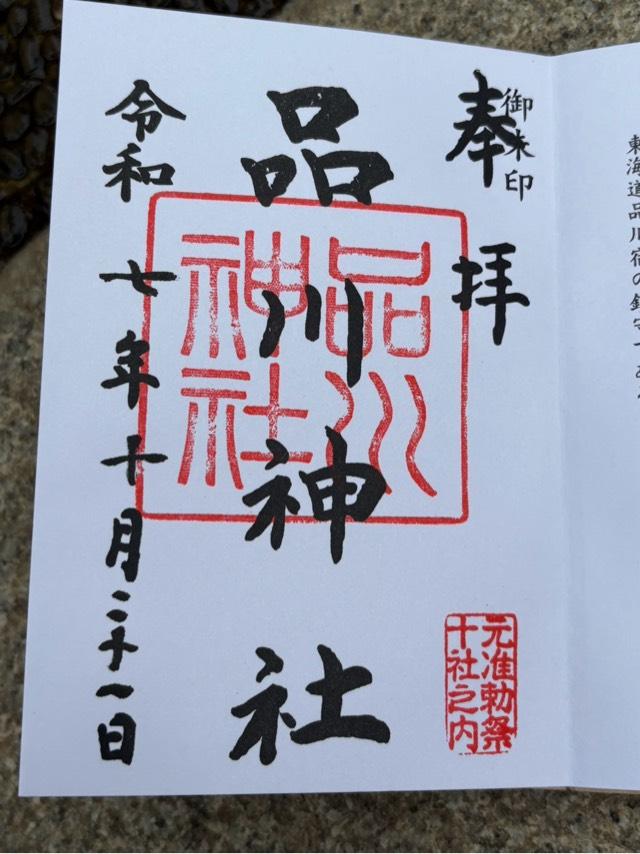 東海道品川宿の鎮守であ
御朱印
奉拝
元准勅祭
十社之内
品川神社
品川
神社
令和七年十月三十一日